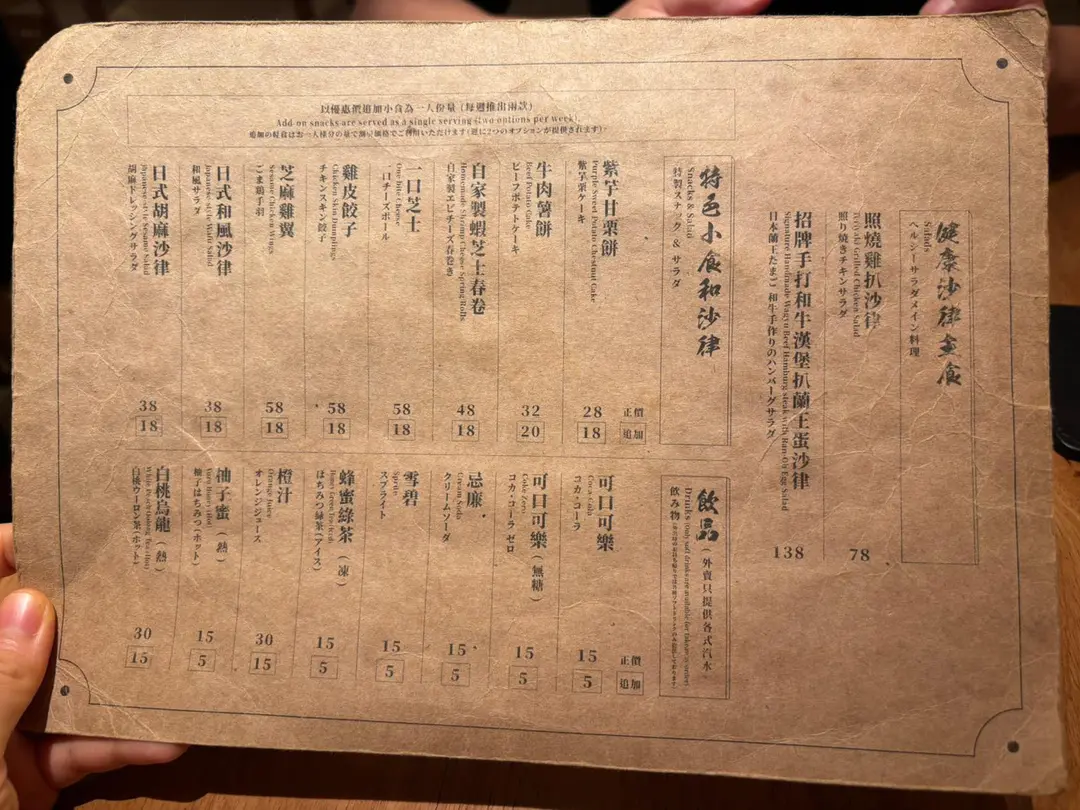 健康沙律主食
Salads
ヘルシーサラダメイン料理
照燒雞扒沙律
Teriyaki Grilled Chicken Salad
照り焼きチキンサラダ
78
招牌手打和牛漢堡扒蘭王蛋沙律
Signature Handmade Wagyu Beef Hamburg steak with Ran-Oh Egg Salad
日本蘭王たまご 和牛手作りのハンバーグサラダ
138
以優惠價追加小食為一人份量 (每週推出兩款)
Add-on snacks are served as a single serving (two options per week).
追加の軽食はお一人様分の量で割引価格でご利用いただけます(週に2つのオプションが提供されます)
特色小食和沙律
Snacks & Salad
特製スナック & サラダ
正價
追加
紫芋甘栗餅
Purple Sweet Potato Chestnut Cake
紫芋栗ケーキ
28
18
牛肉薯餅
Beef Potato Cake
ビーフポテトケーキ
32
20
自家製蝦芝士春卷
Homemade Shrimp Cheese Spring Rolls
自家製エビチーズ春巻き
48
18
一口芝士
One Bite Cheese
一口チーズボール
58
18
雞皮餃子
Chicken Skin Dumplings
チキンスキン餃子
58
18
芝麻雞翼
Sesame Chicken Wings
ごま鶏手羽
58
18
日式和風沙律
Japanese-style Wafu Salad
和風サラダ
38
18
日式胡麻沙律
Japanese-style Sesame Salad
胡麻ドレッシングサラダ
38
18
飲品 (外賣只提供各式汽水)
Drinks (Only soft drinks are available for takeaway orders)
飲み物
正價
追加
可口可樂
Coca-Cola
コカ・コーラ
15
5
可口可樂 (無糖)
Coke Zero
コカ・コーラ ゼロ
15
5
忌廉
Cream Soda
クリームソーダ
15
5
雪碧
Sprite
スプライト
15
5
蜂蜜綠茶 (凍)
Honey Green Tea (Iced)
はちみつ緑茶 (アイス)
15
5
橙汁
Orange Juice
オレンジジュース
30
15
柚子蜜 (熱)
Yuzu Honey (Hot)
柚子はちみつ (ホット)
15
5
白桃烏龍 (熱)
White Peach Oolong Tea (Hot)
白桃ウーロン茶 (ホット)
30
15